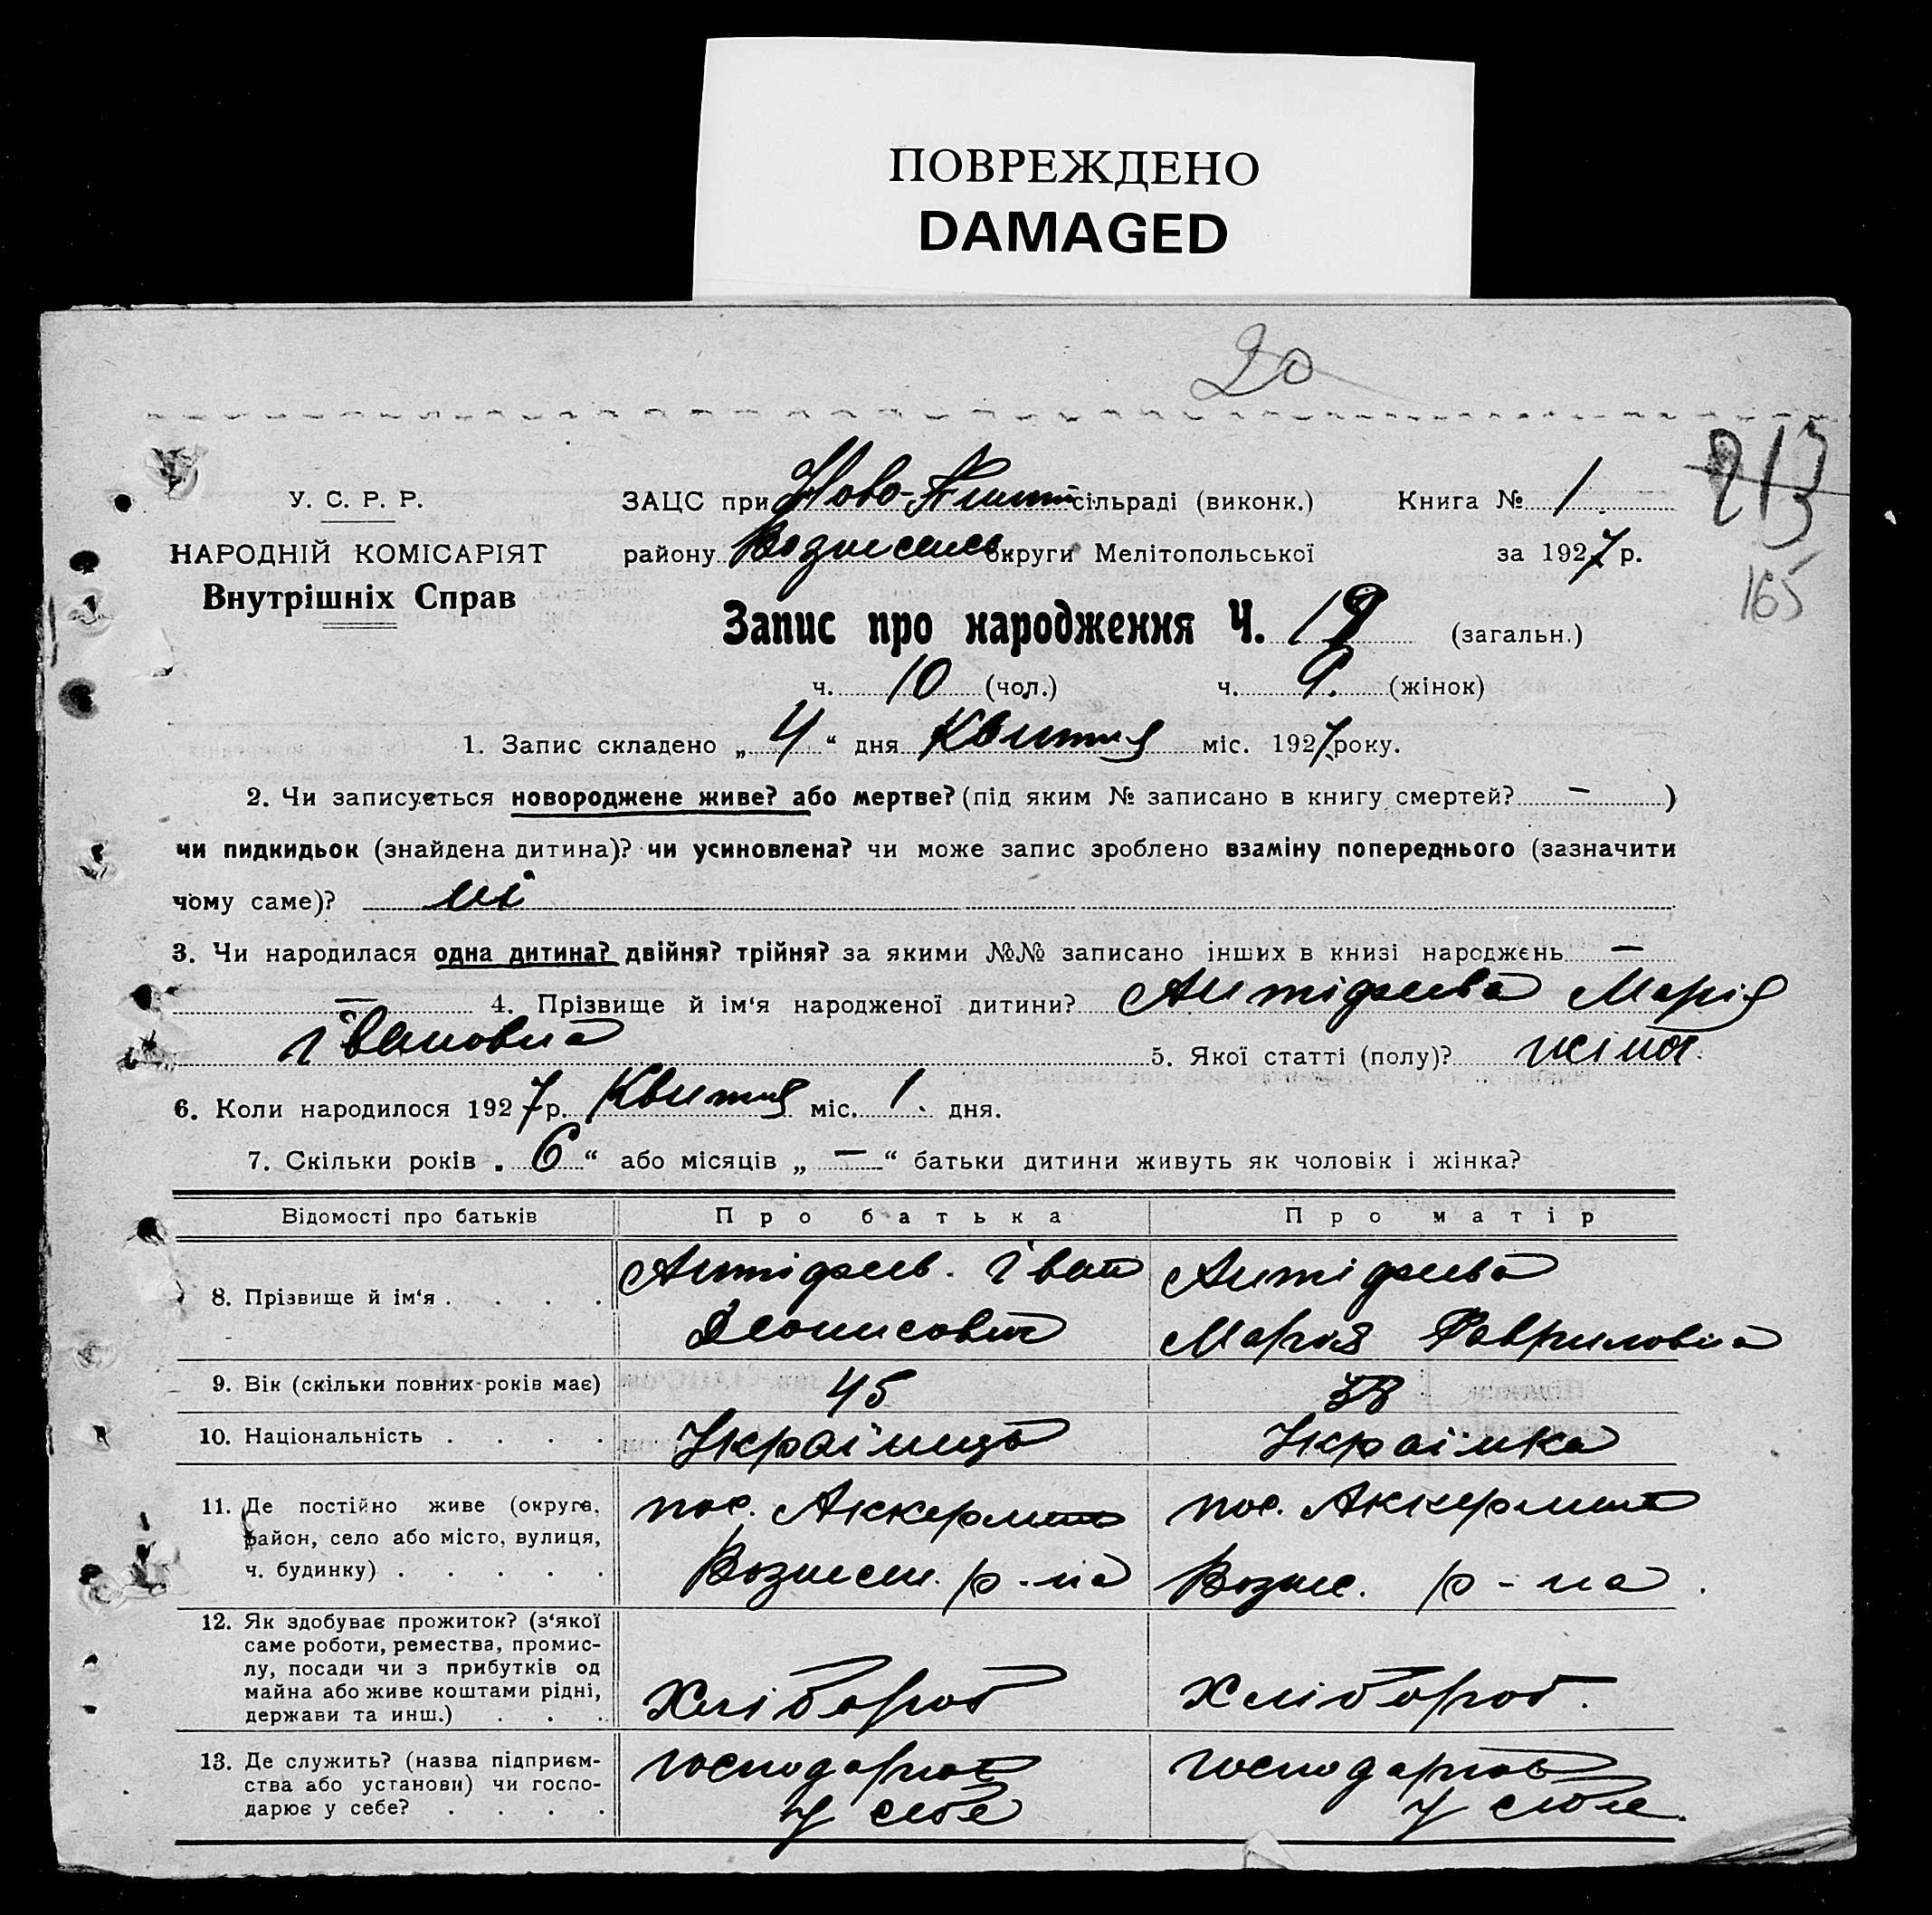 ПОВРЕЖДЕНО
DAMAGED
20
213
165
У. С. Р. Р.
НАРОДНІЙ КОМІСАРІЯТ
Внутрішніх Справ
ЗАЦС при Ново- сільраді (виконк.) Книга № 1
району Вознесенс округи Мелітопольської за 1927 р.
Запис про народження Ч. 19 (загальн.)
ч. 10 (чол.) ч. 9. (жінок)
1. Запис складено „ 4 “ дня Квитня міс. 1927 року.
2. Чи записується новороджене живе? або мертве? (під яким № записано в книгу смертей? — )
чи пидкидьок (знайдена дитина)? чи усиновлена? чи може запис зроблено взаміну попереднього (зазначити
чому саме)? ні
3. Чи народилася одна дитина? двійня? трійня? за якими №№ записано інших в книзі народжень —
— 4. Прізвище й ім‘я народженої дитини? Антіфиева Марія
Івановна 5. Якої статті (полу)? жіноч.
6. Коли народилося 1927 р. Квитня міс. 1. дня.
7. Скільки років „ 6 “ або місяців „ — “ батьки дитини живуть як чоловік і жінка?
Відомості про батьків Про батька Про матір
8. Прізвище й ім‘я . . . . Антіфиев. Іван Антіфиева
Деонисович Марія Гавриловна
9. Вік (скільки повних років має) 45 38
10. Національність . . . . Українець Українка
11. Де постійно живе (округа, район, село або місто, вулиця, ч. будинку) . . . . . пос. Аккермень пос. Аккермень
Вознесен. р-на Возне. р-на.
12. Як здобуває прожиток? (з‘якої
саме роботи, ремества, промис-
лу, посади чи з прибутків од
майна або живе коштами рідні,
держави та инш.) . . . Хлібороб Хлібороб.
13. Де служить? (назва підприєм-
ства або установи) чи госпо-
дарює у себе? . . . . господарює господарює
у себе у себе.